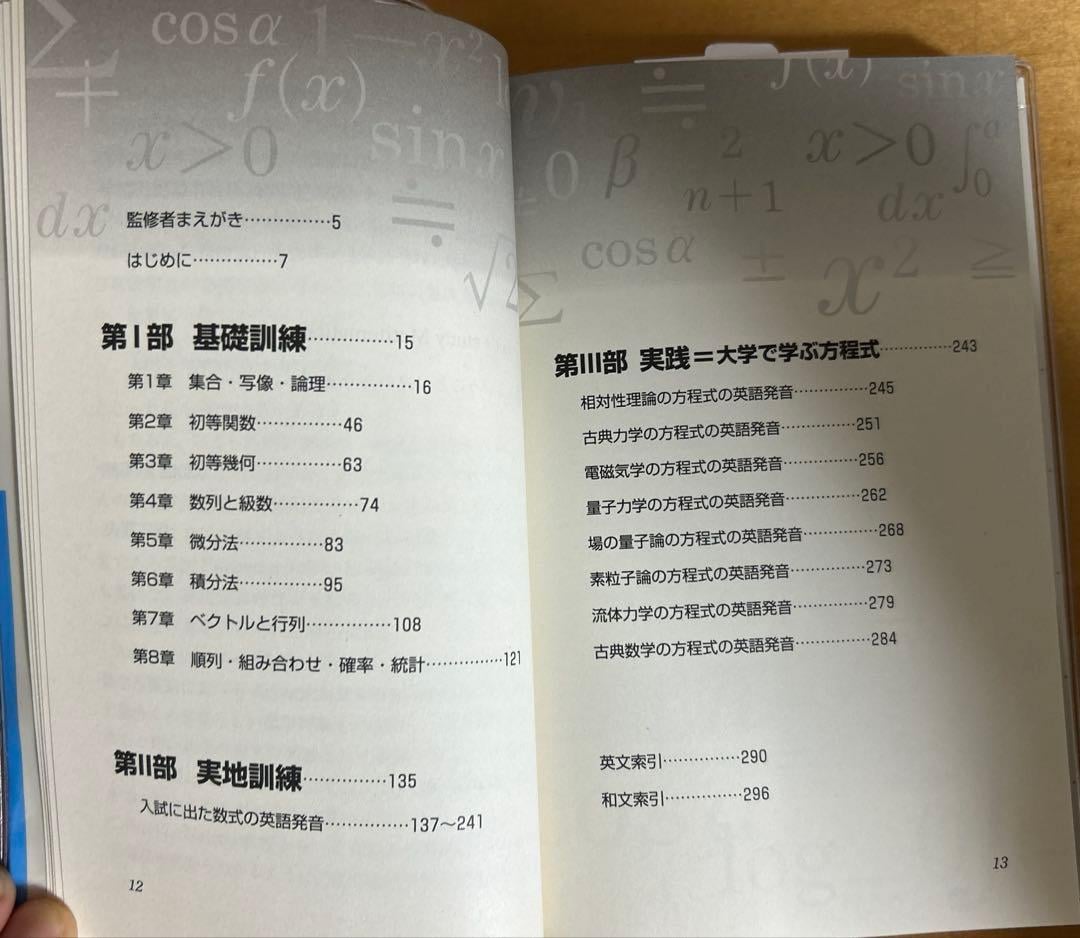 cosα 1−x²
f(x)
sin x
x>0
dx
監修者まえがき……………5
はじめに……………7
第Ⅰ部 基礎訓練……………15
第1章 集合・写像・論理……………16
第2章 初等関数……………46
第3章 初等幾何……………63
第4章 数列と級数……………74
第5章 微分法……………83
第6章 積分法……………95
第7章 ベクトルと行列……………108
第8章 順列・組み合わせ・確率・統計……………121
第Ⅱ部 実地訓練……………135
入試に出た数式の英語発音……………137〜241
12
f(x) sin x
β 2 x>0 ∫₀ᵃ
n+1 dx
cosα ± x² ≧
第Ⅲ部 実践=大学で学ぶ方程式……………243
相対性理論の方程式の英語発音……………245
古典力学の方程式の英語発音……………251
電磁気学の方程式の英語発音……………256
量子力学の方程式の英語発音……………262
場の量子論の方程式の英語発音……………268
素粒子論の方程式の英語発音……………273
流体力学の方程式の英語発音……………279
古典数学の方程式の英語発音……………284
英文索引……………290
和文索引……………296
log
13